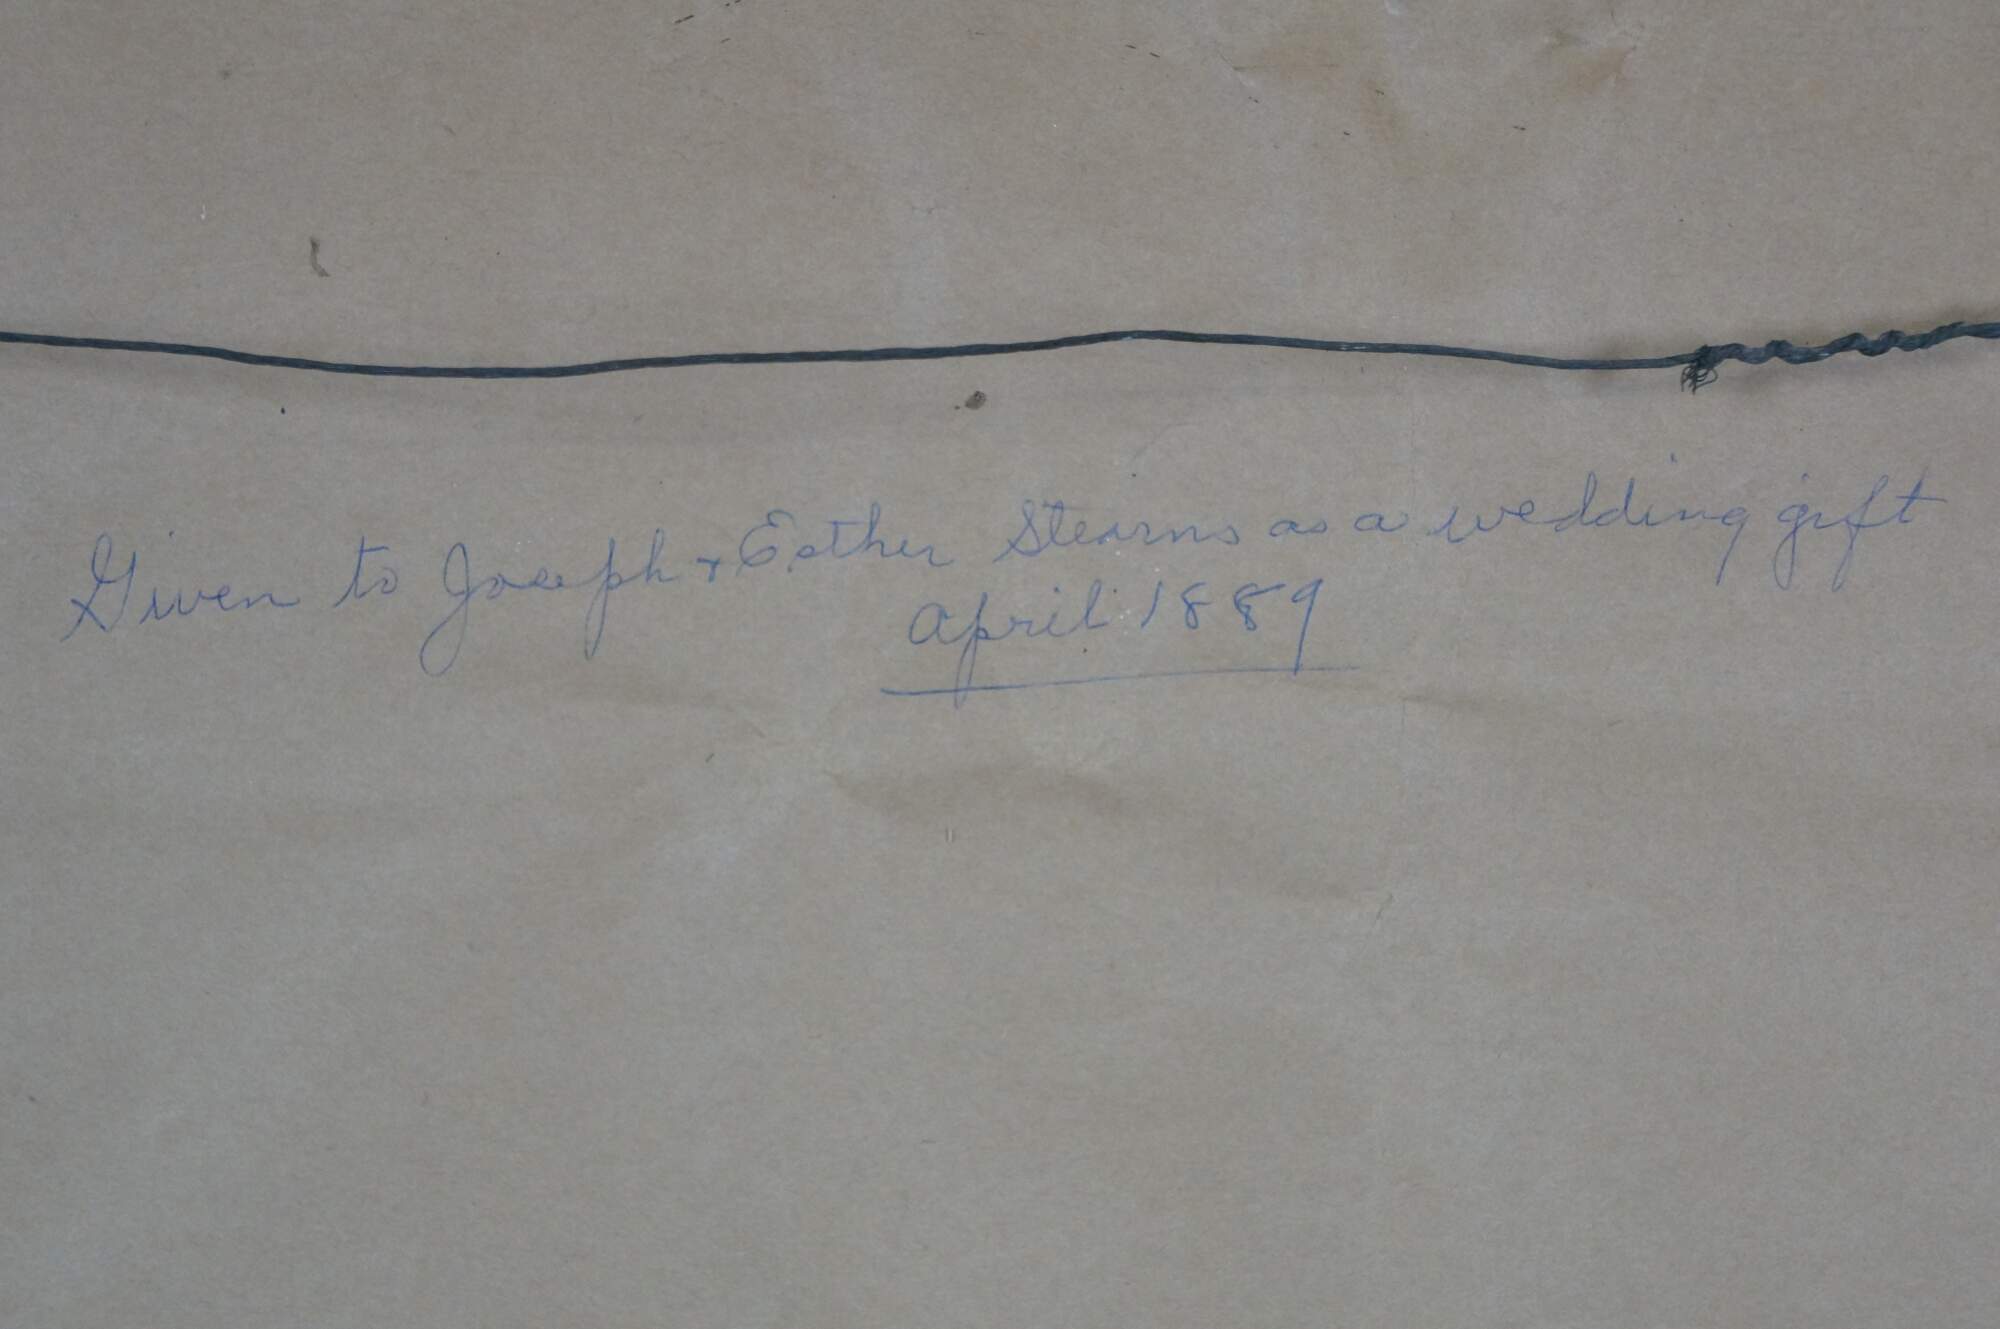 Given to Joseph & Esther Stearns as a wedding gift
April 1889